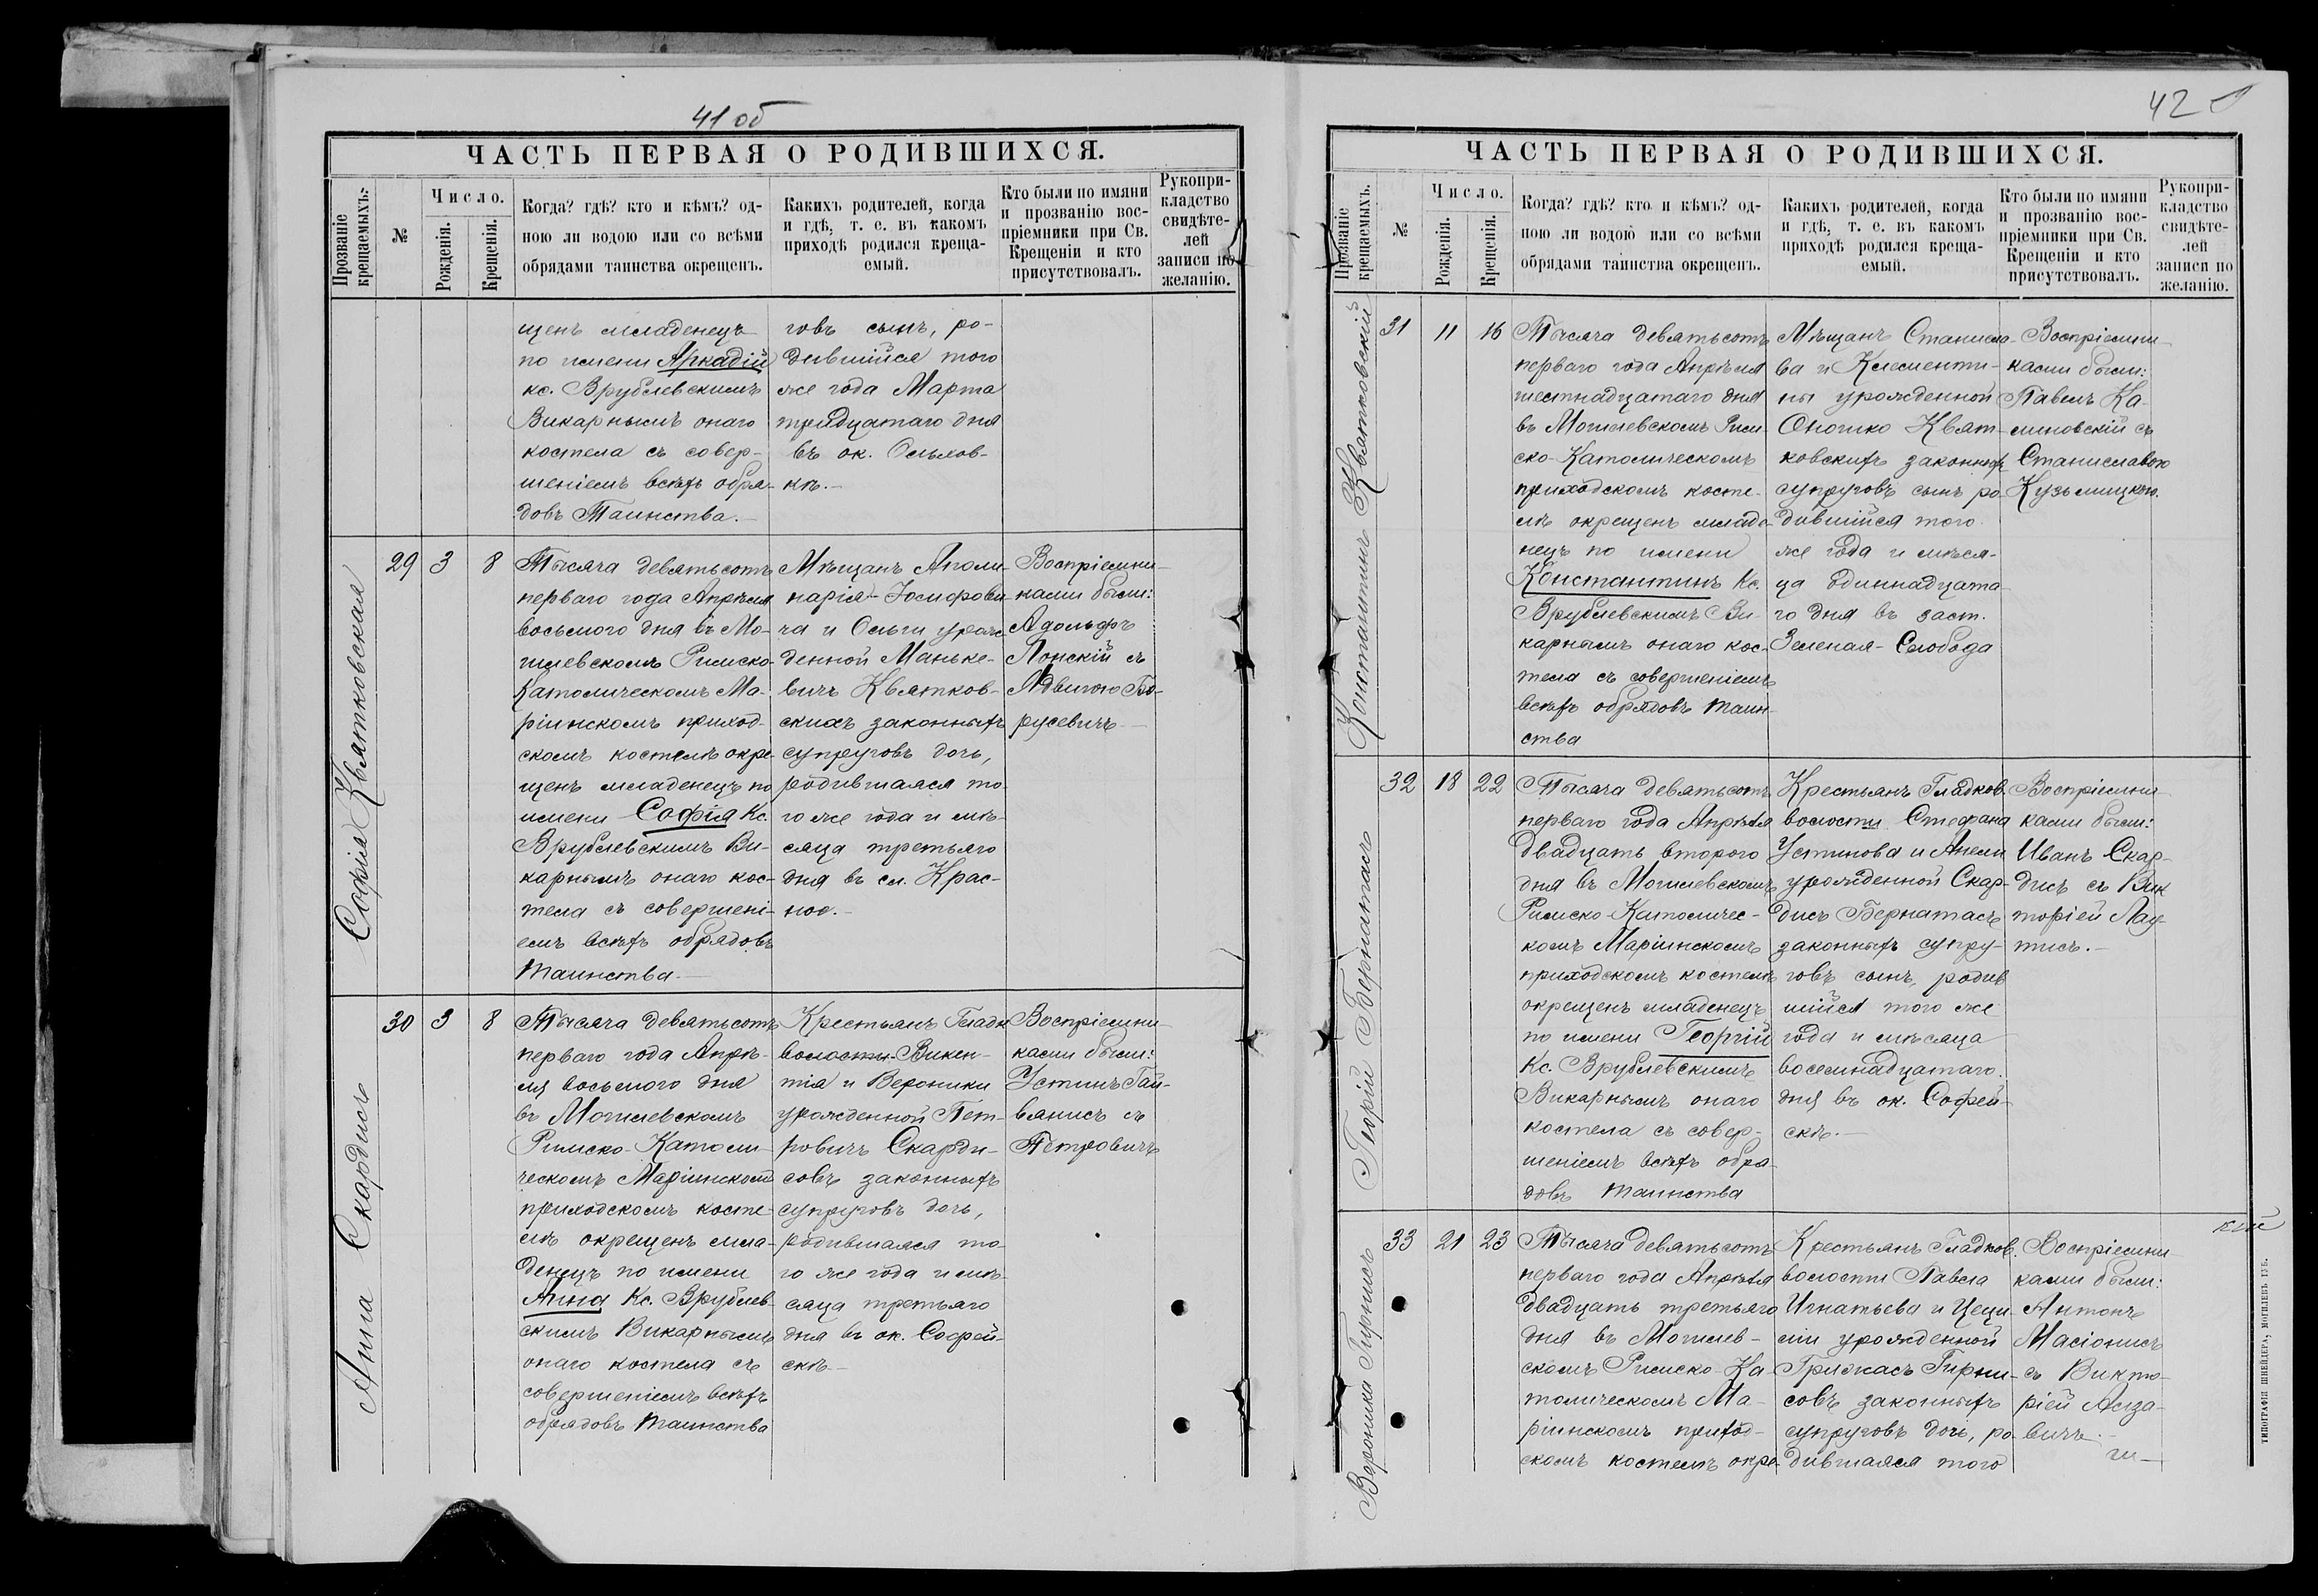 41 об
ЧАСТЬ ПЕРВАЯ О РОДИВШИХСЯ.
Прозваніе крещаемыхъ.
№
Число.
Рожденія.
Крещенія.
Когда? гдѣ? кто и кѣмъ? од-
ною ли водою или со всѣми
обрядами таинства окрещенъ.
Какихъ родителей, когда
и гдѣ, т. е. въ какомъ
приходѣ родился креща-
емый.
Кто были по имяни
и прозванію вос-
пріемники при Св.
Крещеніи и кто
присутствовалъ.
Рукопри-
кладство
свидѣте-
лей
записи по
желанію.
щенъ младенецъ
по имени Аркадій
кс. Врублевскимъ
Викарнымъ онаго
костела съ совер-
шеніемъ всѣхъ обря-
довъ Таинства.
говъ сынъ, ро-
дившійся того
же года Марта
тридцатаго дня
въ ок. Ольхов-
кѣ.
Софія Квятковская
29 3 8
Тысяча девятьсотъ
перваго года Апрѣля
восьмого дня въ Мо-
гилевскомъ Римско-
Католическомъ Ма-
ріинскомъ приход-
скомъ костелѣ окре-
щенъ младенецъ по
имени Софія Кс.
Врублевскимъ Ви-
карнымъ онаго кос-
тела съ совершені-
емъ всѣхъ обрядовъ
Таинства.
Мѣщанъ Аполи-
нарія-Іосифови-
ча и Ольги урож-
денной Маньке-
вичъ Квятков-
скихъ законныхъ
супруговъ дочь,
родившаяся то-
го же года и мѣ-
сяца третьяго
дня въ сл. Крас-
ное.
Воспріемни-
ками были:
Адольфъ
Понскій съ
Ядвигою Бо-
русевичъ
Анна Скардисъ
30 3 8
Тысяча девятьсотъ
перваго года Апрѣ-
ля восьмого дня
въ Могилевскомъ
Римско-Католи-
ческомъ Маріинскомъ
приходскомъ косте-
лѣ окрещенъ мла-
денецъ по имени
Анна Кс. Врублев-
скимъ Викарнымъ
онаго костела съ
совершеніемъ всѣхъ
обрядовъ Таинства
Крестьянъ Гладк
волости Викен-
тія и Вероники
урожденной Пет-
ровичъ Скарди-
совъ законныхъ
супруговъ дочь,
родившаяся то-
го же года и мѣ-
сяца третьяго
дня въ ок. Софей-
скѣ
Воспріемни-
ками были:
Устинъ Гай-
влнисъ съ
Петровичъ
42
ЧАСТЬ ПЕРВАЯ О РОДИВШИХСЯ.
Прозваніе крещаемыхъ.
№
Число.
Рожденія.
Крещенія.
Когда? гдѣ? кто и кѣмъ? од-
ною ли водою или со всѣми
обрядами таинства окрещенъ.
Какихъ родителей, когда
и гдѣ, т. е. въ какомъ
приходѣ родился креща-
емый.
Кто были по имяни
и прозванію вос-
пріемники при Св.
Крещеніи и кто
присутствовалъ.
Рукопри-
кладство
свидѣте-
лей
записи по
желанію.
Константинъ Квятковскій
31 11 16
Тысяча девятьсотъ
перваго года Апрѣля
шестнадцатаго дня
въ Могилевскомъ Рим-
ско-Католическомъ
приходскомъ косте-
лѣ окрещенъ младе-
нецъ по имени
Константинъ Кс.
Врублевскимъ Ви-
карнымъ онаго кос-
тела съ совершеніемъ
всѣхъ обрядовъ Таин
ства
Мѣщанъ Станисла-
ва и Клементи-
ны урожденной
Оношко Квят-
ковскихъ законныхъ
супруговъ сынъ ро-
дившійся того
же года и мѣся-
ца одиннадцата-
го дня въ заст.
Зеленая-Слобода
Воспріемни-
ками были:
Павелъ Ка-
линовскій съ
Станиславою
Кузьмицкою.
Георгій Бернатасъ
32 18 22
Тысяча девятьсотъ
перваго года Апрѣля
двадцать второго
дня въ Могилевскомъ
Римско-Католичес-
комъ Маріинскомъ
приходскомъ костелѣ
окрещенъ младенецъ
по имени Георгій
Кс. Врублевскимъ
Викарнымъ онаго
костела съ совер-
шеніемъ всѣхъ обря-
довъ Таинства
Крестьянъ Гладков.
волости Стефана
Устинова и Анели
урожденной Скар-
дисъ Бернатасъ
законныхъ супру-
говъ сынъ, родив
шійся того же
года и мѣсяца
восемнадцатаго
дня въ ок. Софей-
скѣ.
Воспріемни-
ками были:
Иванъ Скар-
дисъ съ Вик
торіей Лау-
тисъ.
Вероника Гирнисъ
33 21 23
Тысяча девятьсотъ
перваго года Апрѣля
двадцать третьяго
дня въ Могилев-
скомъ Римско-Ка-
толическомъ Ма-
ріинскомъ приход-
скомъ костелѣ окре-
Крестьянъ Гладков.
волости Павла
Игнатьева и Цеци-
ліи урожденной
Грижасъ Гирни-
совъ законныхъ
супруговъ дочь, ро-
дившаяся того
Воспріемни-
ками были:
Антонъ
Масіонисъ
съ Викто-
ріей
вичъ.
ТИПОГРАФІЯ ШНЕЙДЕРА, МОГИЛЕВЪ ГУБ.